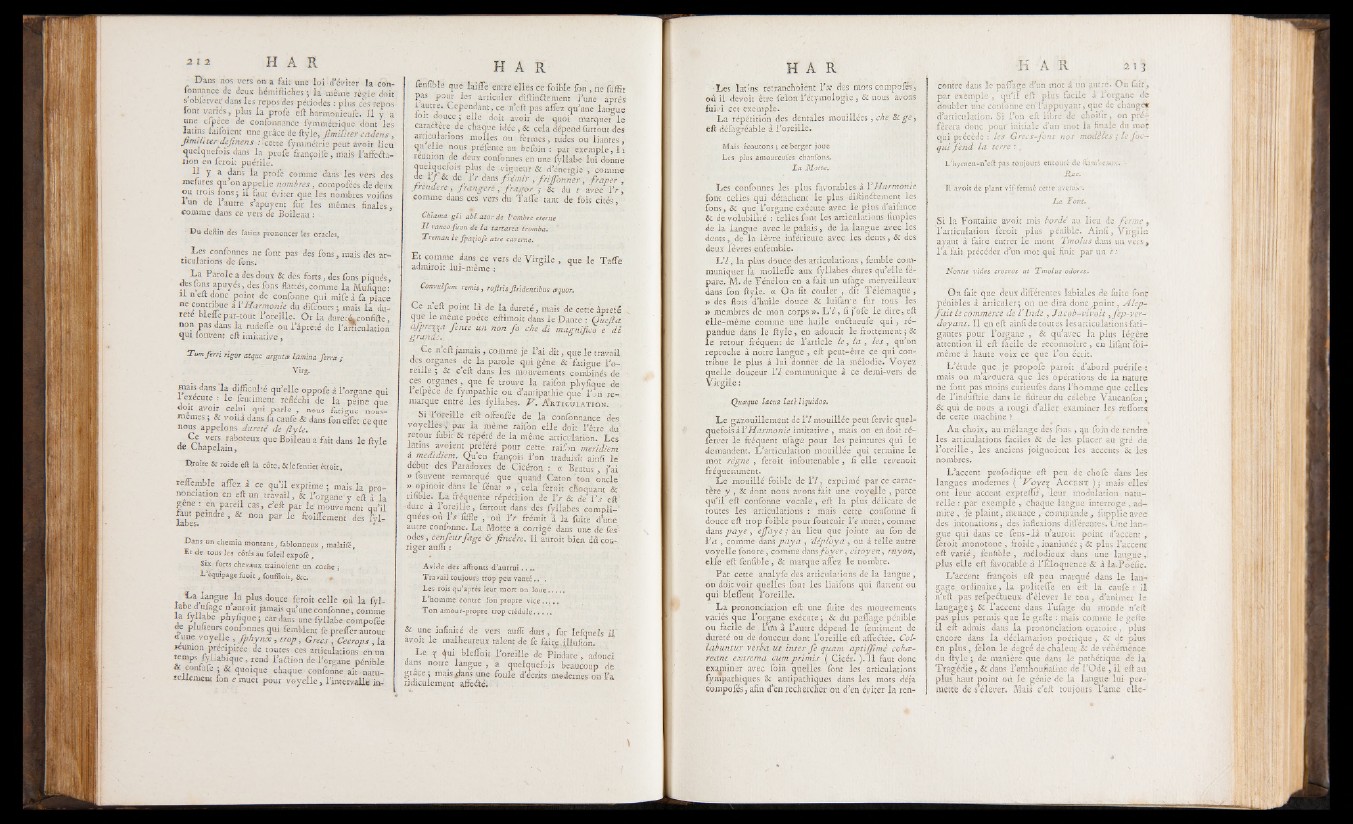 212 H A R
Dans nos vers on a fait une loi d'éviter la con-
sonnance de deux hémistiches ; la même règle doit
s'observer dans les repos des périodes : plus ces repos
sont variés, plus la prose est harmonieuse. Il y a
une espèce de consonnance symmétrique dont les
latins faisoient une grâce de style, similiter cadens,
similiter desinens : cette symmétrie peut avoir lieu
quelquefois dans la prose françoise, mais l'affecta-
tion en seroit puérile.
Il y a dans la prose comme dans les vers des
mesures qu'on appelle nombres, composées de deux
ou trois sons ; il faut éviter que les nombres voisins
l'un de l'autre s'apuyent sur les mêmes finales,
comme dans ce vers de Boileau :
Du destin des latins prononcer les oracles,
Les consonnes ne sont pas des sons, mais des ar-
ticulations de sons.
La Parole a des doux & des forts, des sons piqués,
des sons apuyés, des sons flattés, comme la Musique :
il n'est donc point de consonne qui mise à sa place
ne contribue à l'Harmonie du discours ; mais la du-
reté blesse par-tout l'oreille. Or la dureté consiste,
non pas dans la rudesse ou l'âpreté de l'articulation
qui souvent est imitative,
Tum ferri rigor atque argutæ lamina serræ ;
Virg.
mais dans la difficulté qu'elle oppose à l'organe qui
l'exécute : le sentiment réfléchi de la peine que
doit avoir celui qui parle, nous fatigue nous-
mêmes ; & voilà dans sa cause & dans son effet ce que
nous appelons dureté de style.
Ce vers raboteux que Boileau a fait dans le style
de Chapelain,
Droite & roide est la côte, & le sentier étroit,
ressemble assez à ce qu'il exprime ; mais la pro-
nonciation en est un travail, & l'organe y est à la
gêne : en pareil cas, c'est par le mouvement qu'il
faut peindre, & non par le froissement des syl-
labes.
Dans un chemin montant, sablonneux, malaisé,
Et de tous les côtés au soleil exposé,
Six forts chevaux traînoient un coche ;
L'équipage suoit, souffloit, &c.
La langue la plus douce seroit celle où la syl-
labe d'usage n'auroit jamais qu'une consonne, comme
la syllabe physique ; car dans une syllabe composée
de plusieurs consonnes qui semblent se presser autour
d'une voyelle, sphynx, trop, Grecs, Cecrops, la
réunion précipitée de toutes ces articulations en un
temps syllabique, rend l'action de l'organe pénible
& confuse ; & quoique chaque consonne ait natu-
rellement son e muet pour voyelle, l'intervalle in-
H A R
sensible que laisse entre elles ce foible son, ne suffit
pas pour les articuler distinctement l'une après
l'autre. Cependant, ce n'est pas assez qu'une langue
soit douce ; elle doit avoir de quoi marquer le
caractère de chaque idée, & cela dépend surtout des
articulations molles ou fermes, rudes ou liantes,
qu'elle nous présente au besoin : par exemple, la
réunion de deux consonnes en une syllabe lui donne
quelquefois plus de vigueur & d'énergie, comme
de l'f & de l'r dans frémir, frissonner, fraper,
frendere, frangere, fragor ; & du t avec l'r,
comme dans ces vers du Tasse tant de fois cités,
Chiama gli abitator de l'ombre eterne
Il rauco suon de la tartarea tromba.
Treman le spaziose atre caverne.
Et comme dans ce vers de Virgile, que le Tasse
admiroit lui-même :
Convulsum remis, rostris stridentibus æquor.
Ce n'est point là de la dureté, mais de cette âpreté
que le même poète estimoit dans le Dante : Questa
asprezza sente un non so che di magnifico e di
grande.
Ce n'est jamais, comme je l'ai dit, que le travail
des organes de la parole qui gêne & fatigue l'o-
reille ; & c'est dans les mouvements combinés de
ces organes, que se trouve la raison physique de
l'espèce de sympathie ou d'antipathie que l'on re-
marque entre les syllabes. V. ARTICULATION.
Si l'oreille est offensée de la consonnance des
voyelles, par la même raison elle doit l'être du
retour subit & répété de la même articulation. Les
latins avoient préféré pour cette raison meridiem
à medidiem. Qu'en françois l'on traduise ainsi le
début des Paradoxes de Cicéron : « Brutus, j'ai
» souvent remarqué que quand Caton ton oncle
» opinoit dans le sénat », cela seroit choquant &
risible. La fréquente répétition de l'r & de l's est
dure à l'oreille, surtout dans des syllabes compli-
quées où l's siffle, où l'r frémit à la suite d'une
autre consonne. La Motte a corrigé dans une de ses
odes, censeur sage & sincère. Il auroit bien dû cor-
riger aussi :
Avide des affronts d'autrui....
Travail toujours trop peu vanté...
Les rois qu'après leur mort on loue.....
L'homme contre son propre vice.....
Ton amour-propre trop crédule.....
& une infinité de vers aussi durs, sur lesquels il
avoit le malheureux talent de se faire illusion.
Le z qui blessoit l'oreille de Pindare, adouci
dans notre langue, a quelquefois beaucoup de
grâce ; mais dans une foule d'écrits modernes on l'a
ridiculement affecté.
H A R
Les latins retranchoient l'x des mots composés,
où il devoit être selon l'étymologie, & nous avons
suivi cet exemple.
La répétition des dentales mouillées, che & ge,
est désagréable à l'oreille.
Mais écoutons ; ce berger joue
Les plus amoureuses chansons.
La Motte.
Les consonnes les plus favorables à l'Harmonie
sont celles qui détachent le plus distinctement les
sons, & que l'organe exécute avec le plus d'aisance
& de volubilité : telles sont les articulations simples
de la langue avec le palais, de la langue avec les
dents, de la lèvre inférieure avec les dents, & des
deux lèvres ensemble.
L'l, la plus douce des articulations, semble com-
muniquer sa mollesse aux syllabes dures qu'elle sé-
pare. M. de Fénelon en a fait un usage merveilleux
dans son style. « On fit couler, dit Télémaque,
» des flots d'huile douce & luisante sur tous les
» membres de mon corps ». L'l, si j'ose le dire, est
elle-même comme une huile onctueuse qui, ré-
pandue dans le style, en adoucit le frottement ; &
le retour fréquent de l'article le, la, les, qu'on
reproche à notre langue, est peut-être ce qui con-
tribue le plus à lui donner de la mélodie. Voyez
quelle douceur l'l communique à ce demi-vers de
Virgile :
Quæque lacus latè liquidos.
Le gazouillement de l'l mouillée peut servir quel-
quefois à l'Harmonie imitative, mais on en doit ré-
server le fréquent usage pour les peintures qui le
demandent. L'articulation mouillée qui termine le
mot règne, seroit insoutenable, si elle revenoit
fréquemment.
Le mouillé foible de l'l, exprimé par ce carac-
tère y, & dont nous avons fait une voyelle, parce
qu'il est consonne vocale, est la plus délicate de
toutes les articulations : mais cette consonne si
douce est trop foible pour soutenir l'e muet, comme
dans paye, essaye ; au lieu que jointe au son de
l'a, comme dans paya, déploya, ou à telle autre
voyelle sonore, comme dans foyer, citoyen, rayon,
elle est sensible, & marque assez le nombre.
Par cette analyse des articulations de la langue,
on doit voir quelles sont les liaisons qui flattent ou
qui blessent l'oreille.
La prononciation est une suite des mouvements
variés que l'organe exécute ; & du passage pénible
ou facile de l'un à l'autre dépend le sentiment de
dureté ou de douceur dont l'oreille est affectée. Col-
labuntur verba ut inter se quam aptissimè cohæ-
reant extrema cum primis ( Cicér. ). Il faut donc
examiner avec soin quelles sont les articulations
sympathiques & antipathiques dans les mots déja
composés, afin d'en rechercher ou d'en éviter la ren-
H A R 213
contre dans le passage d'un mot à un autre. On sait,
par exemple, qu'il est plus facile à l'organe de
doubler une consonne en l'appuyant, que de changer
d'articulation. Si l'on est libre de choisir, on pré-
férera donc pour initiale d'un mot la finale du mot
qui précède : les Grecs-sont nos modèles ; le soc-
qui fend la terre :
L'hymen-n'est pas toujours entouré de flambeaux.
Rac.
Il avoit de plant vif-fermé cette avenue.
La Font.
Si la Fontaine avoit mis bordé au lieu de fermé,
l'articulation seroit plus pénible. Ainsi, Virgile
ayant à faire entrer le mot Tmolus dans un vers,
l'a fait précéder d'un mot qui finit par un t :
Nonne vides croceos ut Tmolus odores.
On sait que deux différentes labiales de suite sont
pénibles à articuler ; on ne dira donc point, Alep-
fait le commerce de l'Inde, Jacob-vivoit, sep-ver-
doyant. Il en est ainsi de toutes les articulations fati-
gantes pour l'organe, & qu'avec la plus légère
attention il est facile de reconnoître, en lisant soi-
même à haute voix ce que l'on écrit.
L'étude que je propose paroît d'abord puérile :
mais on m'avouera que les opérations de la nature
ne sont pas moins curieuses dans l'homme que celles
de l'industrie dans le flûteur du célèbre Vaucanson ;
& qui de nous a rougi d'aller examiner les ressorts
de cette machine ?
Au choix, au mélange des sons, au soin de rendre
les articulations faciles & de les placer au gré de
l'oreille, les anciens joignoient les accents & les
nombres.
L'accent prosodique est peu de chose dans les
langues modernes ( Voyez ACCENT ) ; mais elles
ont leur accent expressif, leur modulation natu-
relle : par exemple, chaque langue interroge, ad-
mire, se plaint, menace, commande, supplie avec
des intonations, des inflexions différentes. Une lan-
gue qui dans ce sens-là n'auroit point d'accent,
seroit monotone, froide, inanimée ; & plus l'accent
est varié, sensible, mélodieux dans une langue,
plus elle est favorable à l'Éloquence & à la Poésie.
L'accent françois est peu marqué dans le lan-
gage ordinaire, la politesse en est la cause : il
n'est pas respectueux d'élever le ton, d'animer le
langage ; & l'accent dans l'usage du monde n'est
pas plus permis que le geste : mais comme le geste
il est admis dans la prononciation oratoire, plus
encore dans la déclamation poétique, & de plus
en plus, selon le degré de chaleur & de véhémence
du style ; de manière que dans le pathétique de la
Tragédie, & dans l'enthousiasme de l'Ode, il est au
plus haut point où le génie de la langue lui per-
mette de s'élever. Mais c'est toujours l'ame elle-